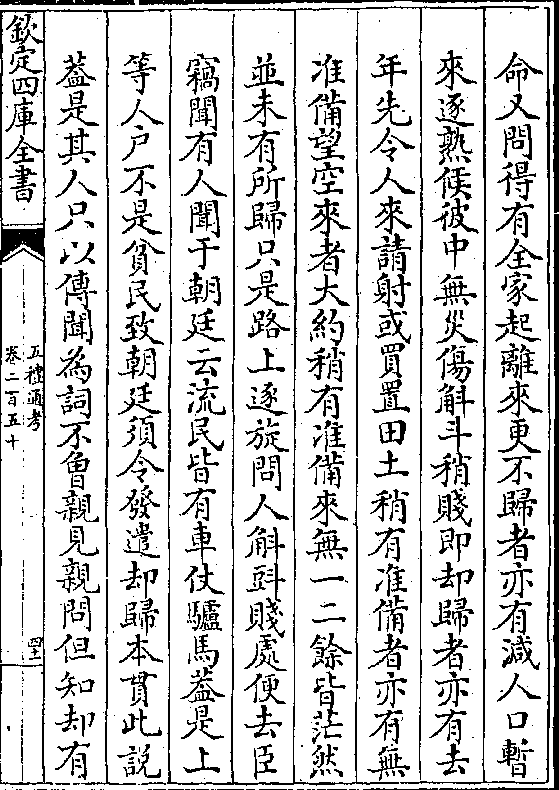 命又問得有全家起離來更不歸者亦有減人口暫
來逐熟候彼中無災傷斛斗稍賤即却歸者亦有去
年先令人來請射或買置田土稍有准備者亦有無
准備望空來者大約稍有准備來無一二餘皆茫然
並未有所歸只是路上逐旋問人斛㪷賤處便去臣
竊聞有人聞于朝廷云流民皆有車仗驢馬葢是上
等人户不是貧民致朝廷須令發遣却歸本貫此説
葢是其人只以傳聞為詞不曾親見親問但知却有
欽定四庫全書
五禮通考
卷二百五十
四十二